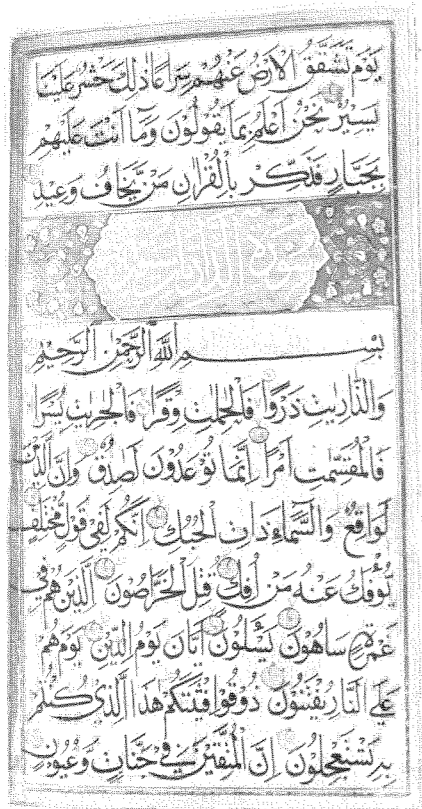 يَوْمَ تَشَقَّقُ الْاَرْضُ عَنْهُمْ سِرَاعًا ذٰلِكَ حَشْرٌ عَلَيْنَا
يَسِيرٌ نَحْنُ اَعْلَمُ بِمَا يَقُولُونَ وَمَا اَنْتَ عَلَيْهِمْ
بِجَبَّارٍ فَذَكِّرْ بِالْقُرْاٰنِ مَنْ يَخَافُ وَعِيدِ
سورة الذاريات
بِسْمِ اللّٰهِ الرَّحْمٰنِ الرَّحِيمِ
وَالذَّارِيٰتِ ذَرْوًا فَالْحٰمِلٰتِ وِقْرًا فَالْجٰرِيٰتِ يُسْرًا
فَالْمُقَسِّمٰتِ اَمْرًا اِنَّمَا تُوعَدُونَ لَصَادِقٌ وَاِنَّ الدِّينَ
لَوَاقِعٌ وَالسَّمَاءِ ذَاتِ الْحُبُكِ اِنَّكُمْ لَفِي قَوْلٍ مُخْتَلِفٍ
يُؤْفَكُ عَنْهُ مَنْ اُفِكَ قُتِلَ الْخَرَّاصُونَ الَّذِينَ هُمْ فِي
غَمْرَةٍ سَاهُونَ يَسْـَٔلُونَ اَيَّانَ يَوْمُ الدِّينِ يَوْمَ هُمْ
عَلَى النَّارِ يُفْتَنُونَ ذُوقُوا فِتْنَتَكُمْ هٰذَا الَّذِي كُنْتُمْ
بِهِ تَسْتَعْجِلُونَ اِنَّ الْمُتَّقِينَ فِي جَنَّاتٍ وَعُيُونٍ